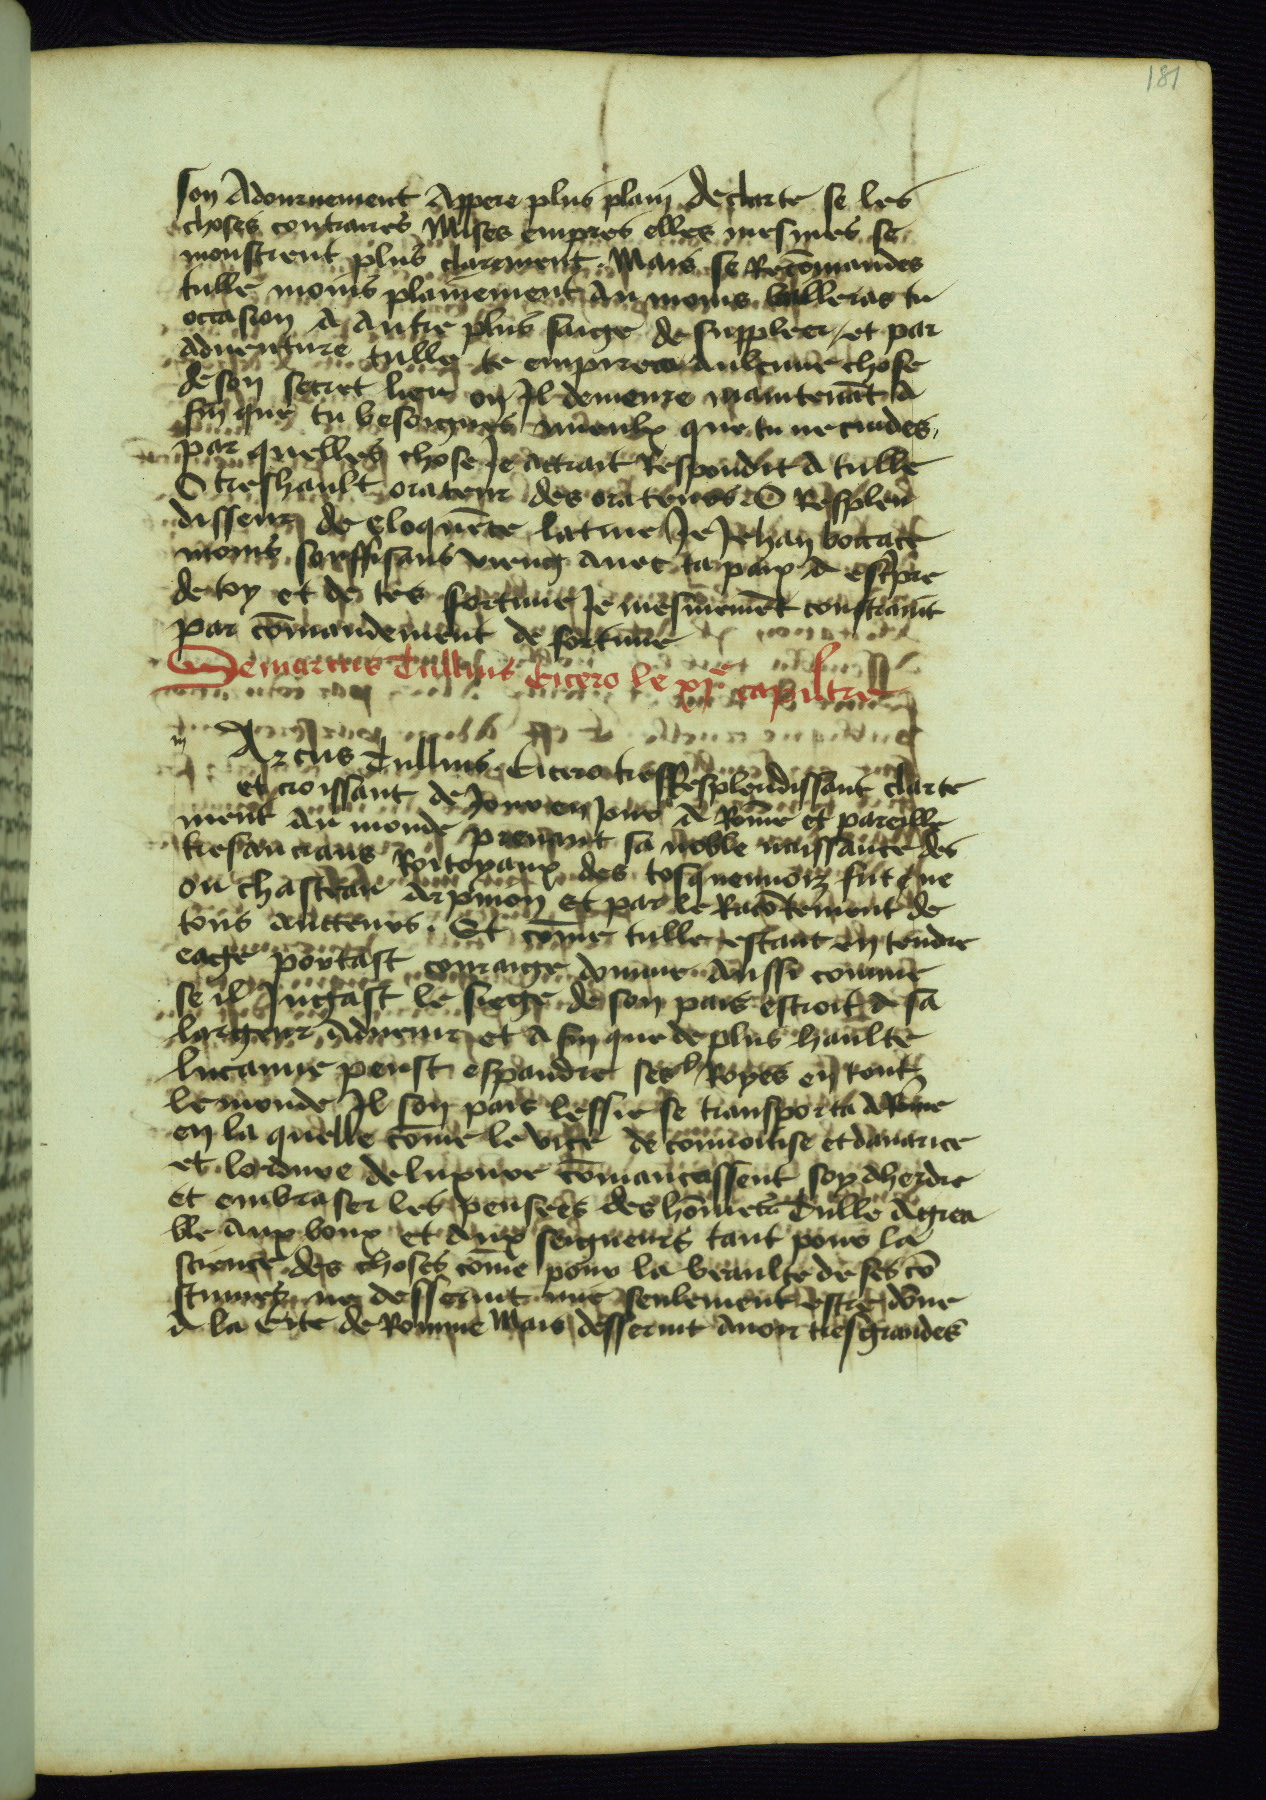 181
son Adournement Appere plus plain de clarte se les
choses contraires Mises empres elles mesmes se
monstrent plus clarement. Mais se Recōmandes
tulle moins plainement Au moins bailleras tu
occasion A Autre plus saige de suppleer / et par
Aduenture tulle te empirera Aulcune chose
de son secret lieu ou Il demeure maintenāt A
fin que tu besoignes mieulx que tu ne cuides,
par quelles chose Je attrait Respondit A tulle
O treshault orateur des orateurs O Resplen
disseur de eloquēce latine Je Jehan boccace
moins souffisant vieng Auec ta paix A escpre
de toy et de tes fortune Je mesmemēt constraint
par cōmandement de fortune
De marcus Tullius Cicero le xje capiltre
m Arcus Tullius Cicero tresResplendissant clarte
et croissant de Jour en Jour A Rōme et pareille
ment Au monde prenant sa noble naissance des
tresancians Roitoyaux des tosquennoiz fut ne
ou chasteau Arpinon et par le Racōtement de
tous Aucteurs. Et cōme tulle estant en tendre
eage portast couraige domme Aussi comme
se il Jugast le siege de son pais estroit A sa
largeur Aduenir et A fin que de plus haulte
lucarne peust espandre ses Royes en tout
le monde Il son pais lessie se transporta A Rōme
en la quelle cōme le vice de conuoitise et dauarice
et lordure de luxure cōmancassent soy Aherdre
et embraser les pensees des hōmes Tulle Agrea
ble Aux boux et Aux seigneurs tant pour la
science des choses cōme pour la beaulte de ses cō
stumes ne desseruit mie seulement estre dōne
A la Cite de Romme Mais desseruit Auoir tresgrandes